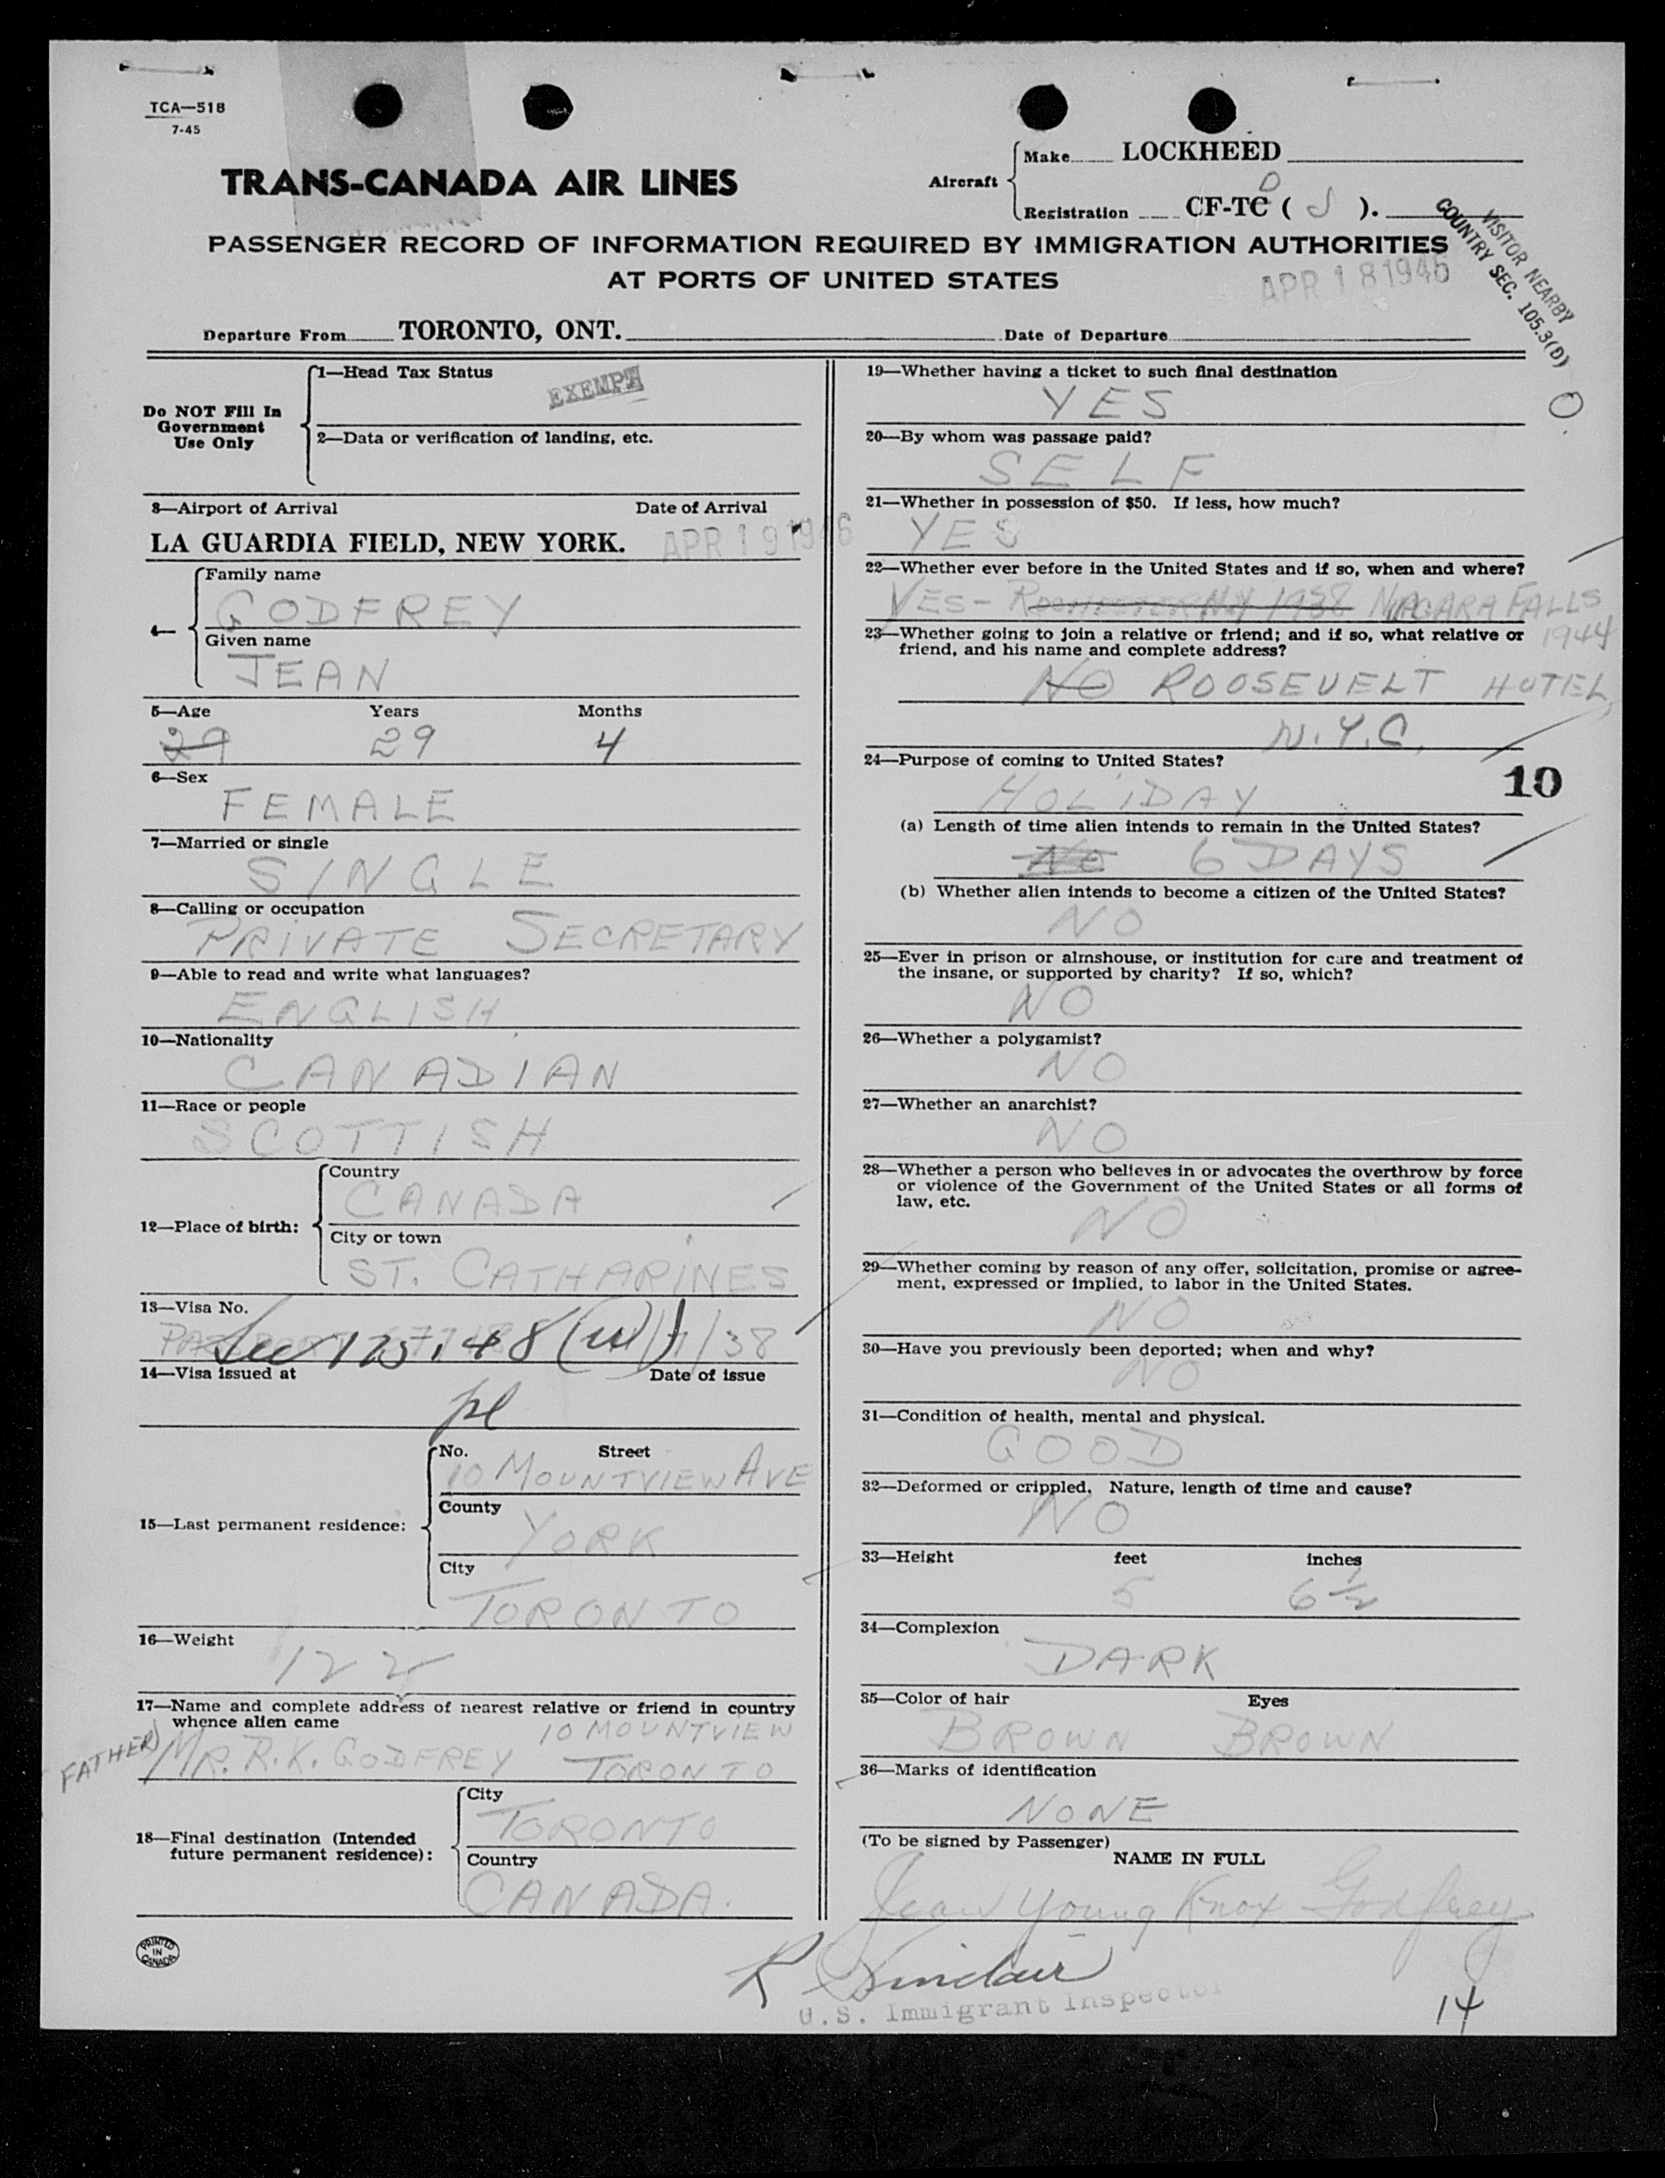 TCA—518
7-45
TRANS-CANADA AIR LINES
Aircraft
Make LOCKHEED
D
Registration CF-TC ( J ).
PASSENGER RECORD OF INFORMATION REQUIRED BY IMMIGRATION AUTHORITIES
AT PORTS OF UNITED STATES
APR 18 1946
VISITOR NEARBY
COUNTRY SEC. 105.3(D)
O.
Departure From TORONTO, ONT. Date of Departure
Do NOT Fill In
Government
Use Only
1—Head Tax Status
EXEMPT
2—Data or verification of landing, etc.
3—Airport of Arrival Date of Arrival
LA GUARDIA FIELD, NEW YORK. APR 19 1946
4—
Family name
GODFREY
Given name
JEAN
5—Age Years Months
29 29 4
6—Sex
FEMALE
7—Married or single
SINGLE
8—Calling or occupation
PRIVATE SECRETARY
9—Able to read and write what languages?
ENGLISH
10—Nationality
CANADIAN
11—Race or people
SCOTTISH
12—Place of birth:
Country
CANADA
City or town
ST. CATHARINES
13—Visa No.
Sec 175.48 /38
14—Visa issued at Date of issue
15—Last permanent residence:
No. Street
10 MOUNTVIEW AVE
County
YORK
City
TORONTO
16—Weight
122
17—Name and complete address of nearest relative or friend in country
whence alien came
10 MOUNTVIEW
FATHER) MR. R.K. GODFREY TORONTO
18—Final destination (Intended
future permanent residence):
City
TORONTO
Country
CANADA.
PRINTED
IN
CANADA
19—Whether having a ticket to such final destination
YES
20—By whom was passage paid?
SELF
21—Whether in possession of $50. If less, how much?
YES
22—Whether ever before in the United States and if so, when and where?
YES - ROCHESTER N.Y 1938 NIAGARA FALLS
1944
23—Whether going to join a relative or friend; and if so, what relative or
friend, and his name and complete address?
NO ROOSEVELT HOTEL,
N.Y.C.
24—Purpose of coming to United States?
HOLIDAY
10
(a) Length of time alien intends to remain in the United States?
NO 6 DAYS
(b) Whether alien intends to become a citizen of the United States?
NO
25—Ever in prison or almshouse, or institution for care and treatment of
the insane, or supported by charity? If so, which?
NO
26—Whether a polygamist?
NO
27—Whether an anarchist?
NO
28—Whether a person who believes in or advocates the overthrow by force
or violence of the Government of the United States or all forms of
law, etc.
NO
29—Whether coming by reason of any offer, solicitation, promise or agree-
ment, expressed or implied, to labor in the United States.
NO
30—Have you previously been deported; when and why?
NO
31—Condition of health, mental and physical.
GOOD
32—Deformed or crippled. Nature, length of time and cause?
NO
33—Height feet inches
5 6½
34—Complexion
DARK
35—Color of hair Eyes
BROWN BROWN
36—Marks of identification
NONE
(To be signed by Passenger)
NAME IN FULL
Jean Young Knox Godfrey
R Sinclair
U.S. Immigrant Inspector
14